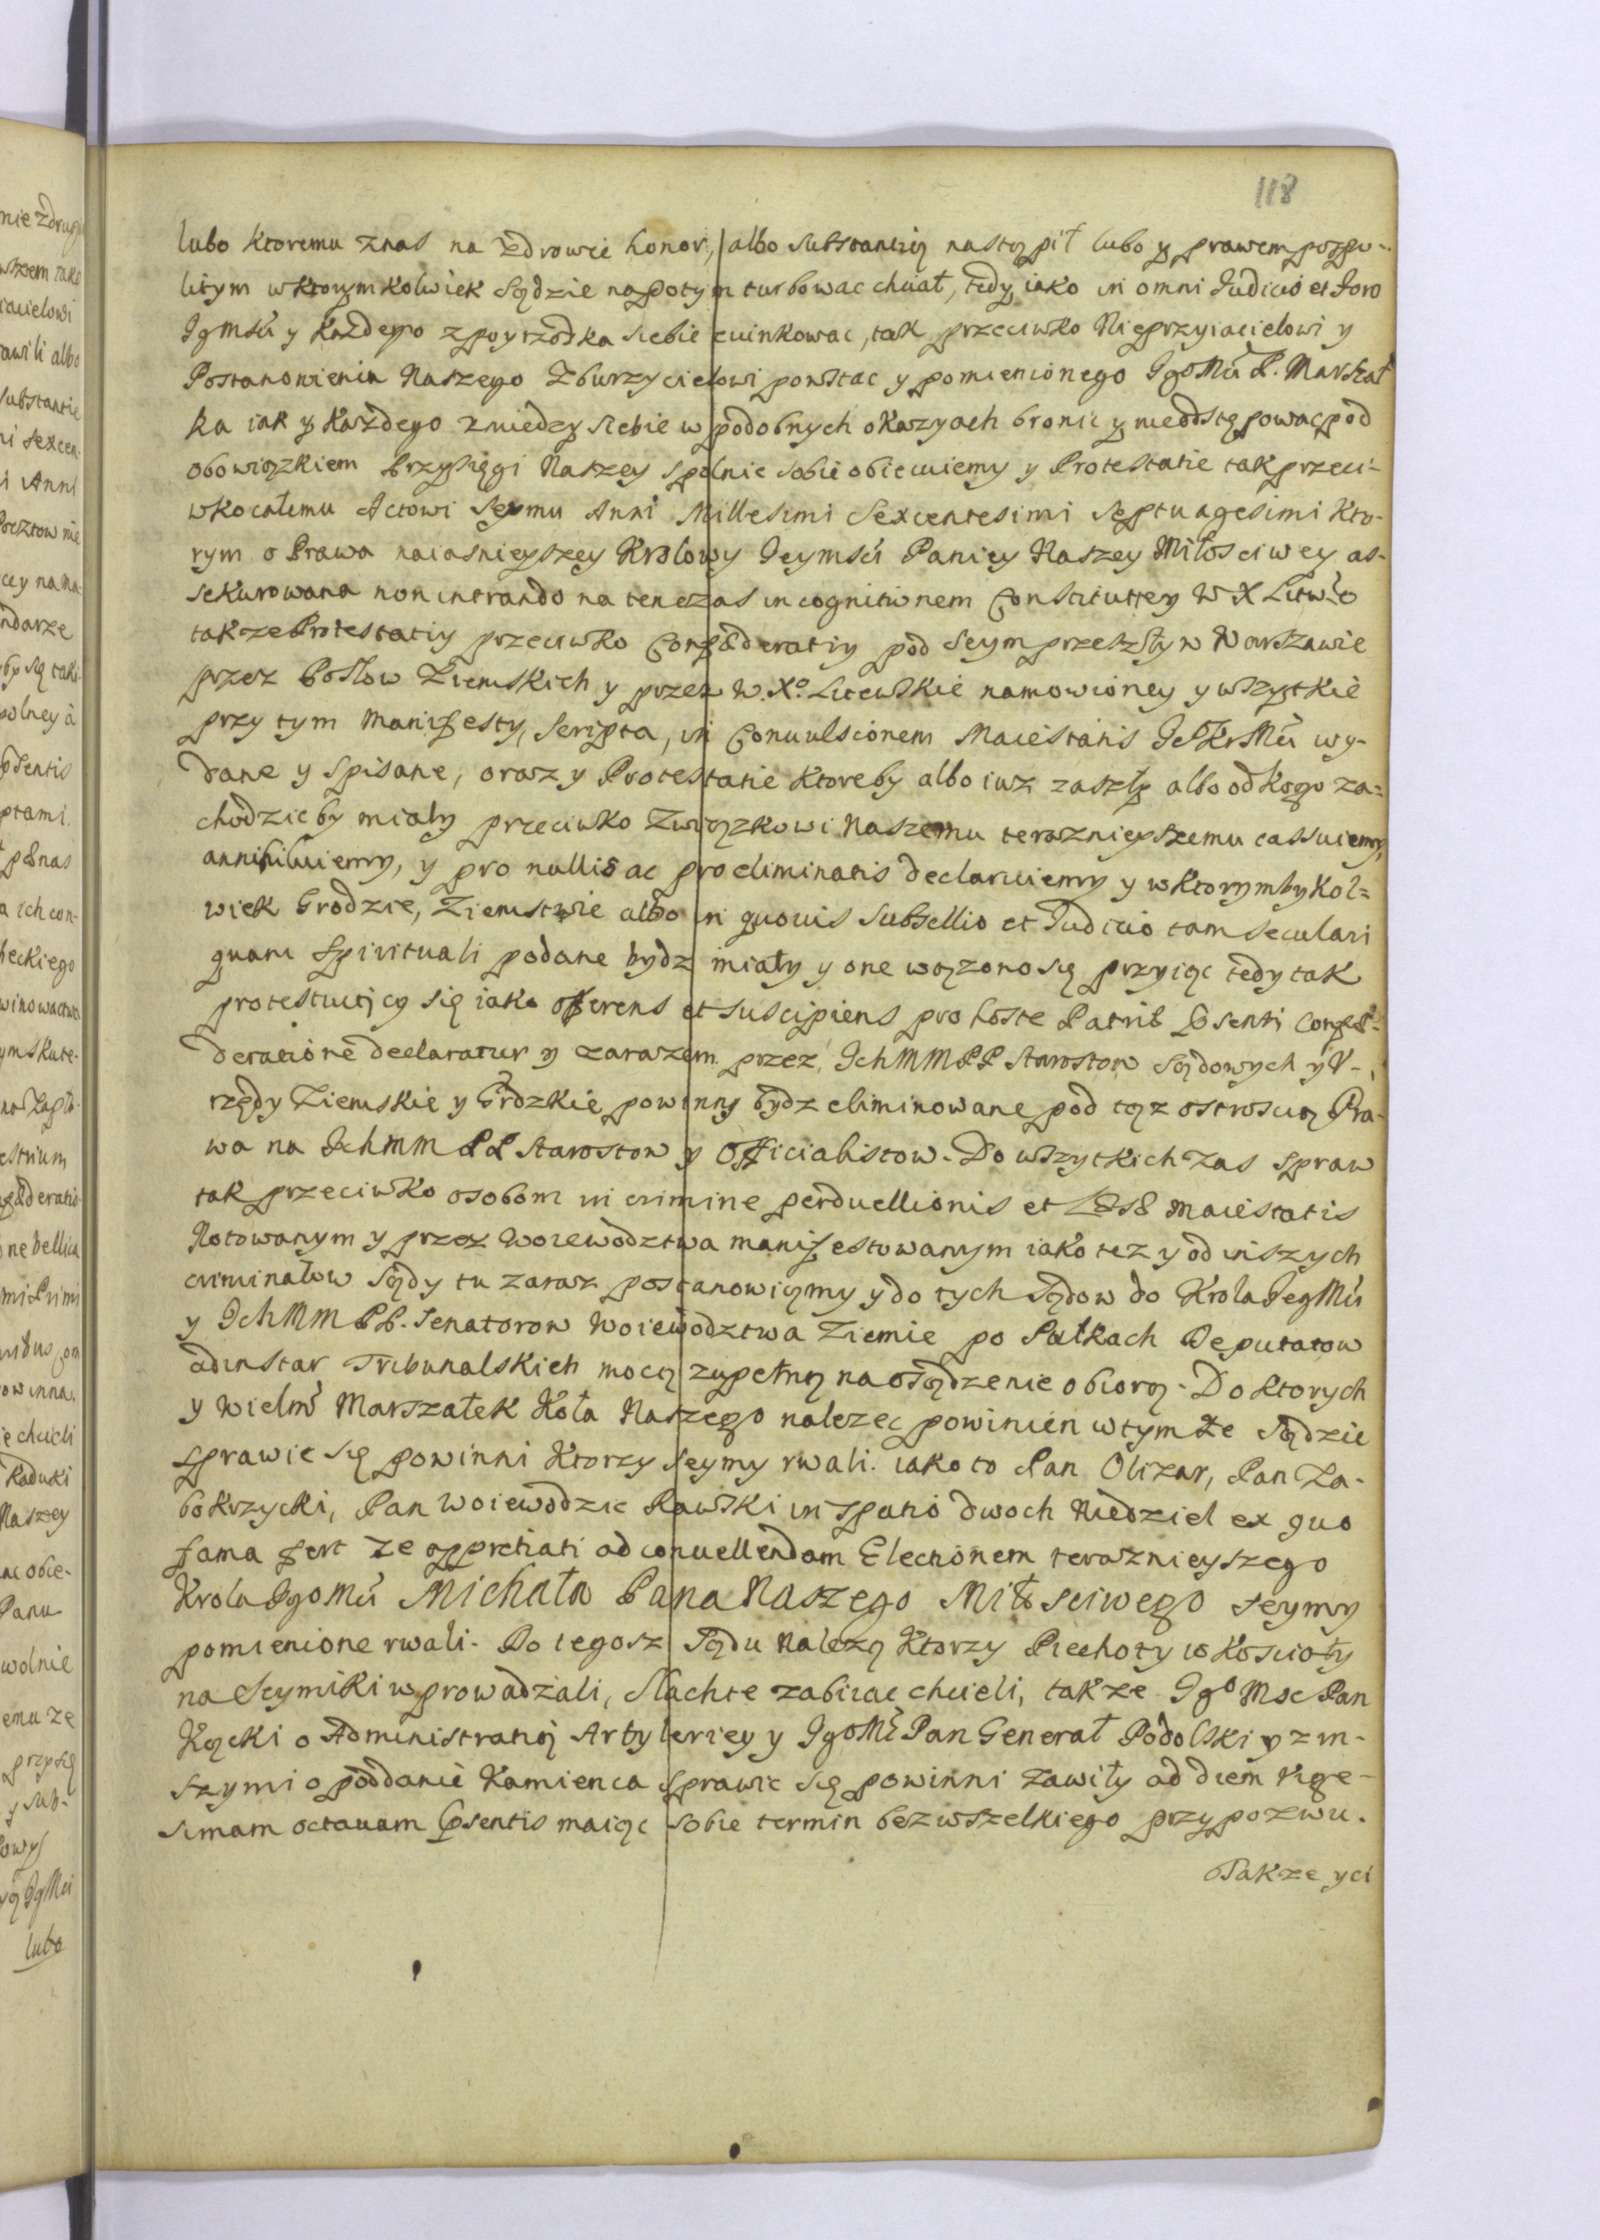 118
lubo ktoremu znas na zdrowie honor, albo substantią nastąpił lubo y prawem pospo-
litym wktorymkolwiek Sądzie napotym turbowac chciał, tedy iako in omni Judicio et Foro
Jgmści y Każdego zpoyrzodka siebie ewinkowac, tak przeciwko Nieprzyiacielowi y
Postanowienia Naszego Zburzycielowi powstac y pomienionego JgoMći P. Marszał
ka iak y Każdego zmiedzy siebie w podobnych okazyach bronic y nieodstępowac pod
obowiązkiem Przysięgi Naszey spolnie sobie obiecuiemy y Protestatie tak przeci-
wko całemu Actowi Seymu Anni Millesimi Sexcentesimi Septuagesimi Kto-
rym o Prawa naiasnieyszey Krolowy Jeymści Paniey Naszey Miłosciwey as-
sekurowana non intrando na tenczas in cognitionem Constitutiey W X Litwo
takze Protestatiy przeciwko Confœderatiy pod Seym przeszły w Warszawie
przez Posłow Ziemskich y przez W. Xo. Litewskie namowioney y wszytkie
przy tym manifesty, scripta, in Convulsionem Maiestatis JeKrMći wy-
dane y spisane, oraz y Protestatie ktoreby albo iuz zaszły albo od kogo za-
chodzicby miały przeciwko Związkowi Naszemu teraznieyszemu cassuiemy,
annihiluiemy, y pro nullis ac pro eliminatis declaruiemy y wktorymbykol-
wiek Grodzie, Ziemstwie albo in quovis Subsellio et Judicio tam seculari
quam spirituali podane bydz miały y one wążonosię przyiąc tedy tak
protestuiący się iako offerens et suscipiens pro hoste Patriæ præsenti Confœ-
deratione declaratur y zarazem przez JchMMPP Starostow Sądowych y U-
rzędy Ziemskie y Grodzkie powinny bydz eliminowane pod tąz ostroscią Pra-
wa na Jchmm PP Starostow y Officialistow. Do wszytkich zas spraw
tak przeciwko osobom in crimine perduellionis et Læsæ Maiestatis
Notowanym y przez Woiewodztwa manifestowanym iako tez y od inszych
criminałow Sądy tu zaraz postanowięmy y do tych Sądow do Krola JegMći
y JchMM PP. Senatorow Woiewodztwa Ziemie po Pułkach Deputatow
ad instar Tribunalskich mocą zupełną na osądzenie obiorą. Do ktorych
y Wielmy Marszałek Koła Naszego nalezec powinien wtymze Sądzie
sprawic się powinni Ktorzy Seymy rwali. iako to Pan Olizar, Pan Za-
bokrzycki, Pan Woiewodzic Rawski in spatio dwoch Niedziel ex quo
fama fert ze appretiati ad convellendam Electionem teraznieyszego
Krola Jgomći Michała Pana Naszego Miłosciwego seymy
pomienione rwali. Do tegosz Sądu Nalezą Ktorzy Piechoty w Koscioły
na Seymiki wprowadzali, Slachte zabiiac chcieli, takze Jgo Msc Pan
Kącki o Administratią Artyleriey y JgoMć Pan Generał Podolski y z in-
szymi o poddanie Kamienca sprawic się powinni Zawity ad diem vige-
simam octavam præsentis maiąc sobie termin bezwszelkiego przypozwu.
Takze yci